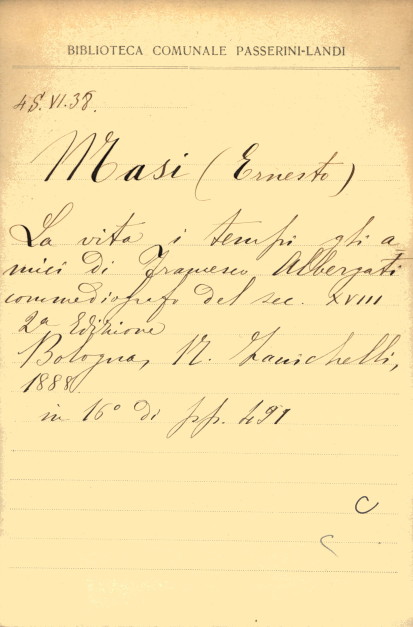 BIBLIOTECA COMUNALE PASSERINI-LANDI
4S.VI.38.
Masi (Ernesto)
La vita i tempi gli a-
mici di Francesco Albergati
commediografo del sec. XVIII
2ª Edizione
Bologna, N. Zanichelli,
1888.
in 16° di pp. 491
C
C